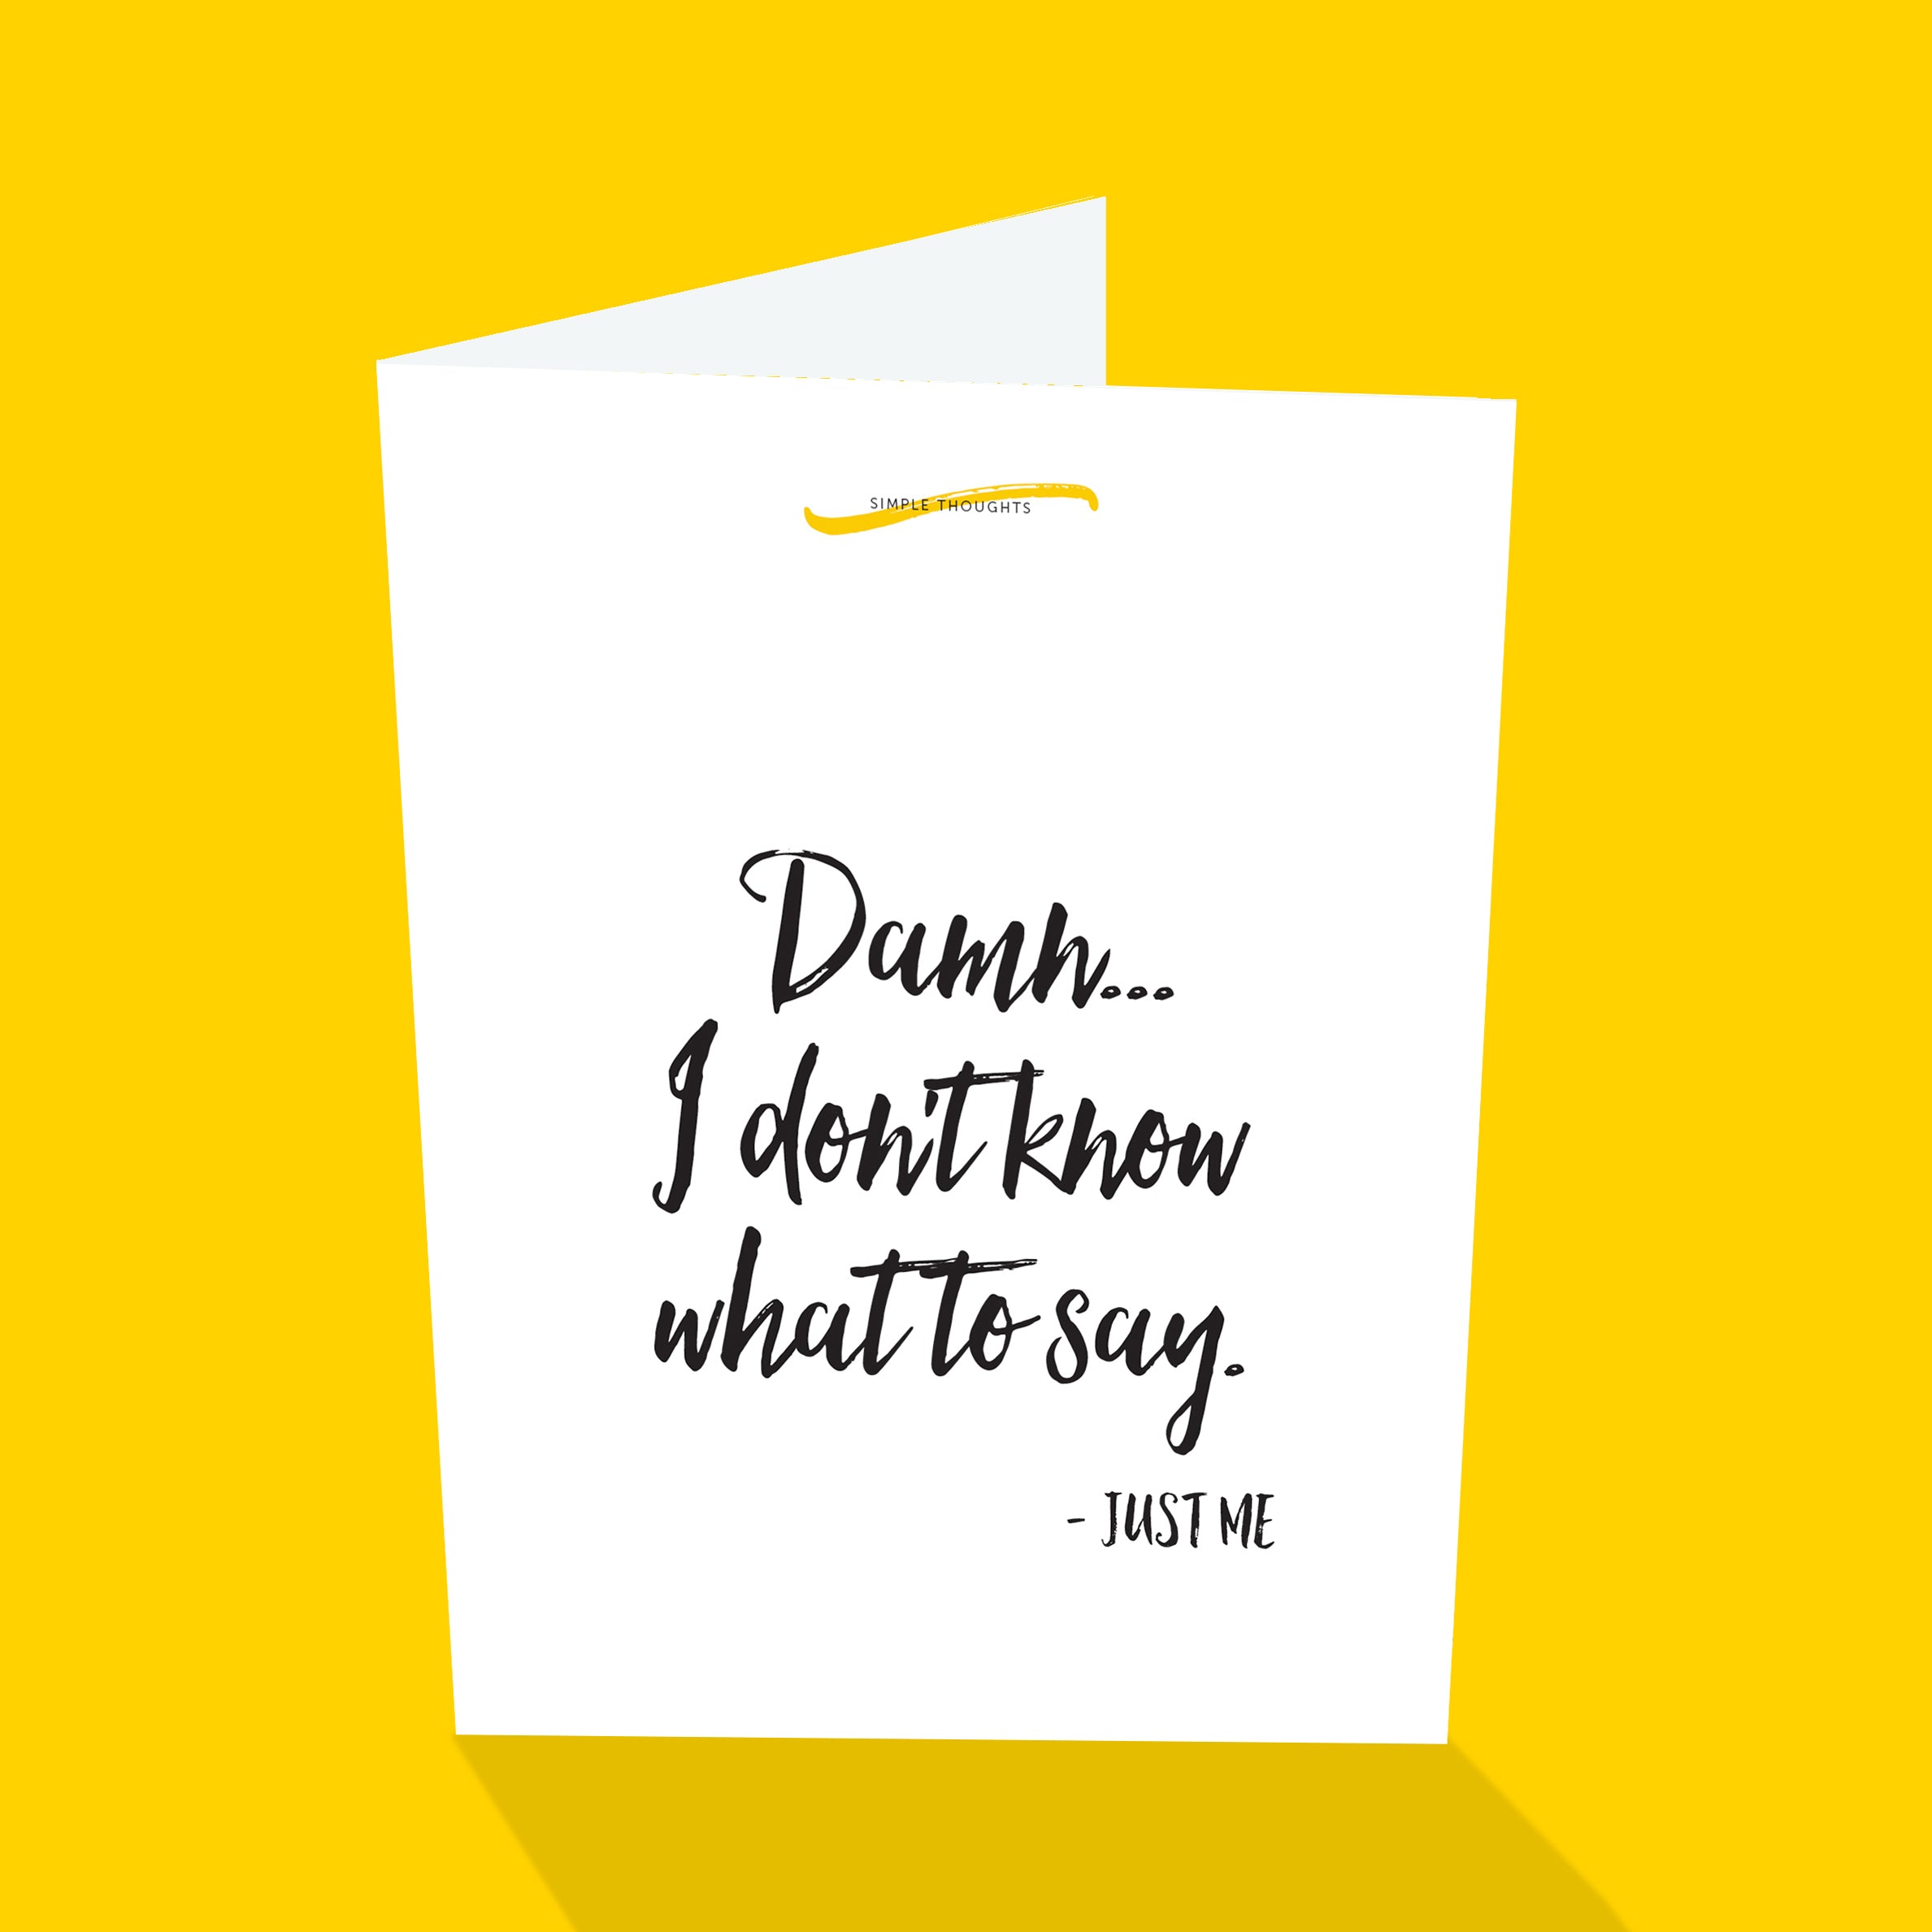 SIMPLE THOUGHTS
Damn...
I don't know
what to say.
- JUST ME